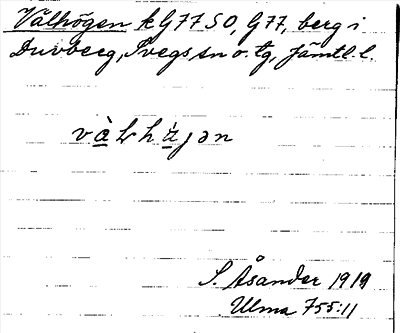 Välhögen k G77 SO, G77, berg i
Duvberg, Svegs sn o. tg, Jämtl. l.
S. Åsander 1919
Ulma 755:11